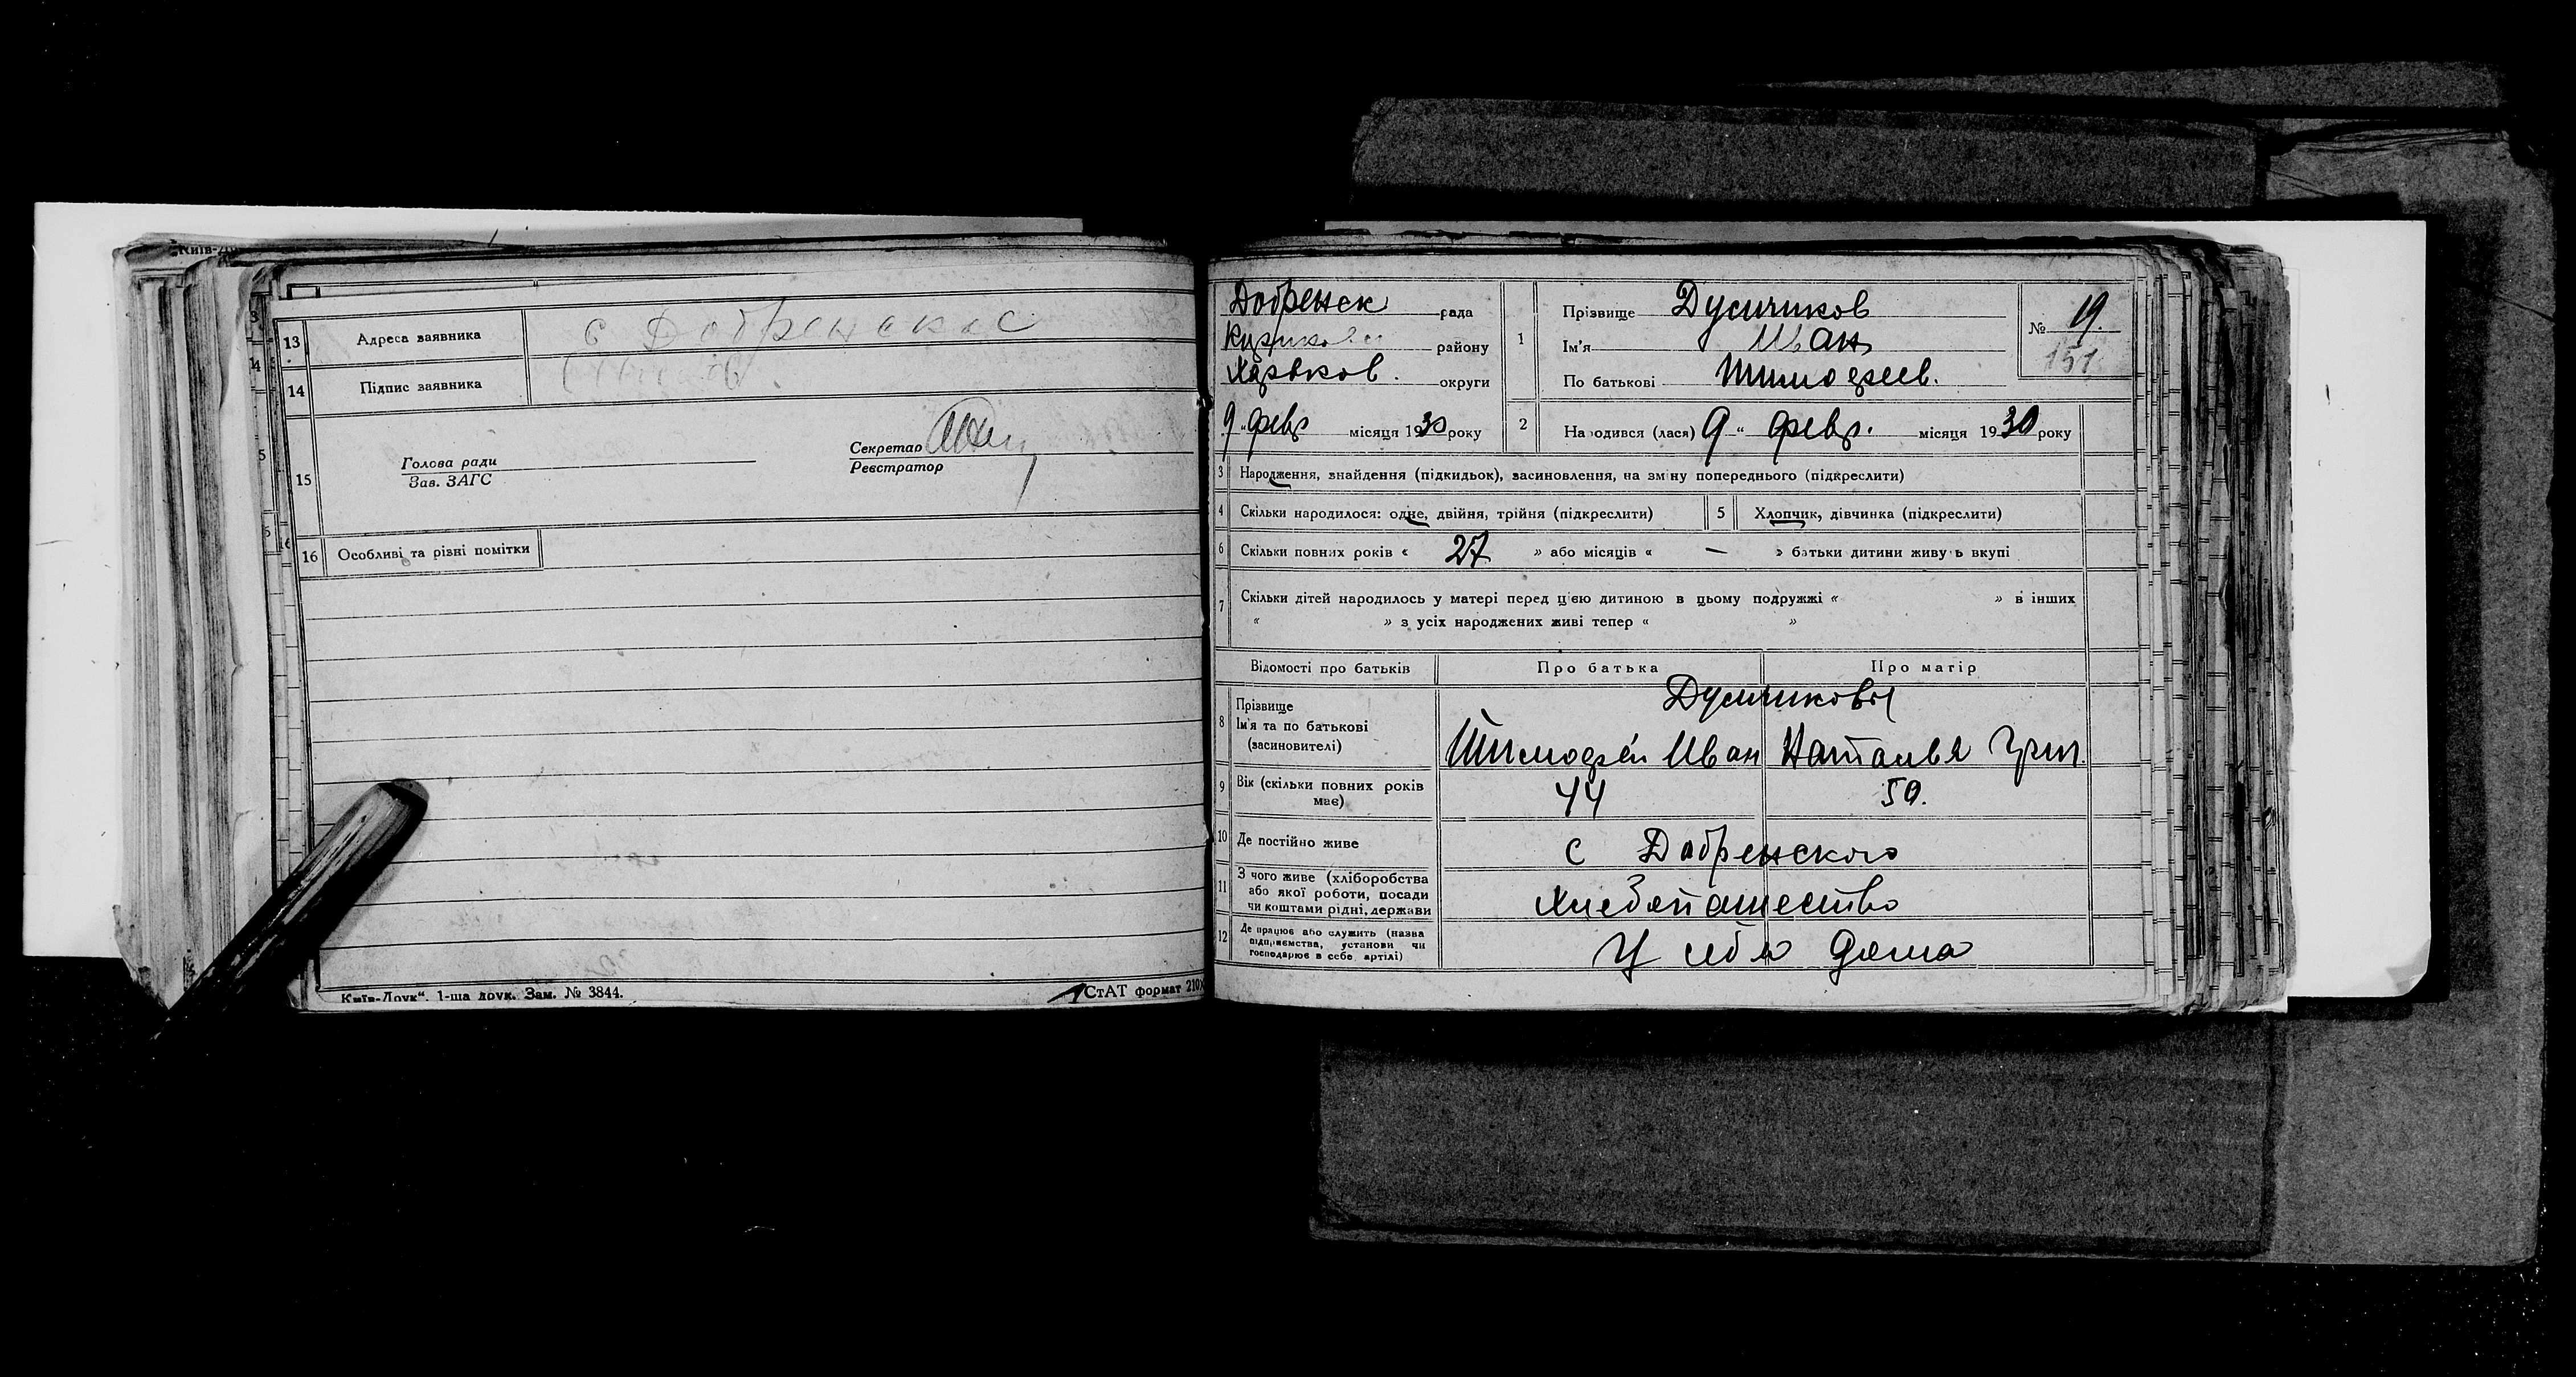 Київ-Др
13 Адреса заявника с Добренское
14 Підпис заявника
15 Голова ради
Зав. ЗАГС
Секретар
Реєстратор
16 Особливі та різні помітки
Київ-Друк“. 1-ша друк. Зам. № 3844.
СтАТ формат 210х
Добренск рада
району
Харьков. округи
9 „ февр місяця 1930 року
1 Прізвище Дусичиков
Ім'я Иван
По батькові Тимофеев.
№ 19.
151
2 Народився (лася) 9 “ февр. місяця 1930 року
3 Народження, знайдення (підкидьок), засиновлення, на зміну попереднього (підкреслити)
4 Скільки народилося: одне, двійня, трійня (підкреслити)
5 Хлопчик, дівчинка (підкреслити)
6 Скільки повних років « 27 » або місяців « — » батьки дитини живуть вкупі
7 Скільки дітей народилось у матері перед цією дитиною в цьому подружжі « » в інших
« » з усіх народжених живі тепер « »
Відомості про батьків Про батька Про матір
Дусичиковы
8 Прізвище
Ім'я та по батькові
(засиновителі)
Тимофей Иван Наталья Григ.
9 Вік (скільки повних років
має)
44 50.
10 Де постійно живе с Добренского
11 З чого живе (хліборобства
або якої роботи, посади
чи коштами рідні, держави
Хлебопашество
12 Де працює або служить (назва
підприємства, установи чи
господарює в себе, артілі)
У себя дома